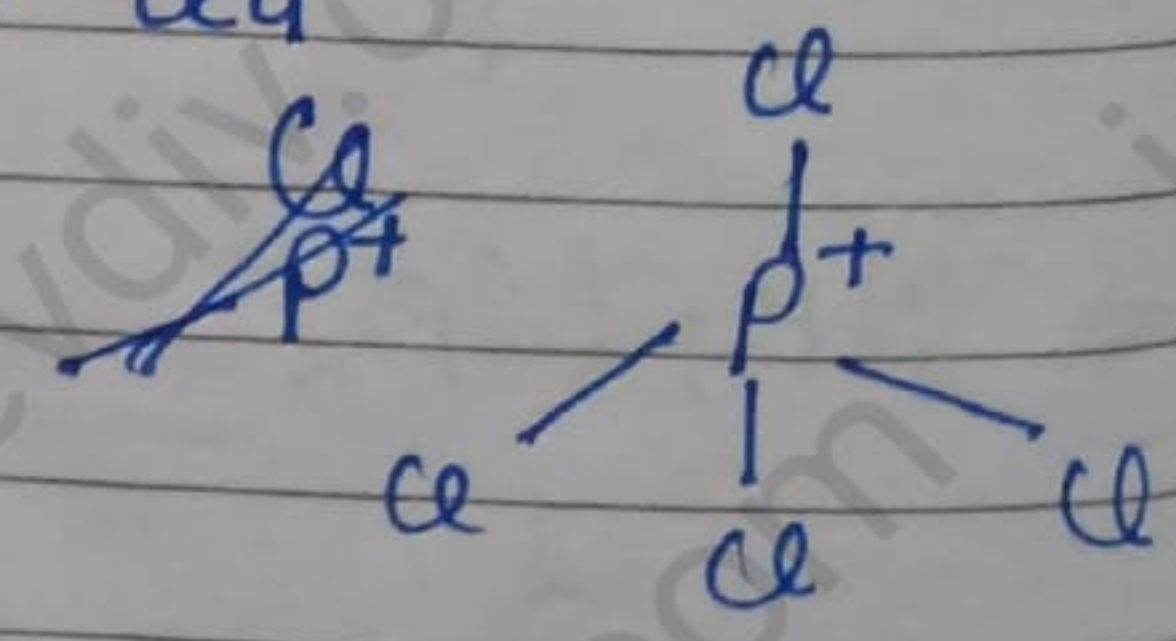 Cl
P+
Cl
P+
Cl
Cl
Cl